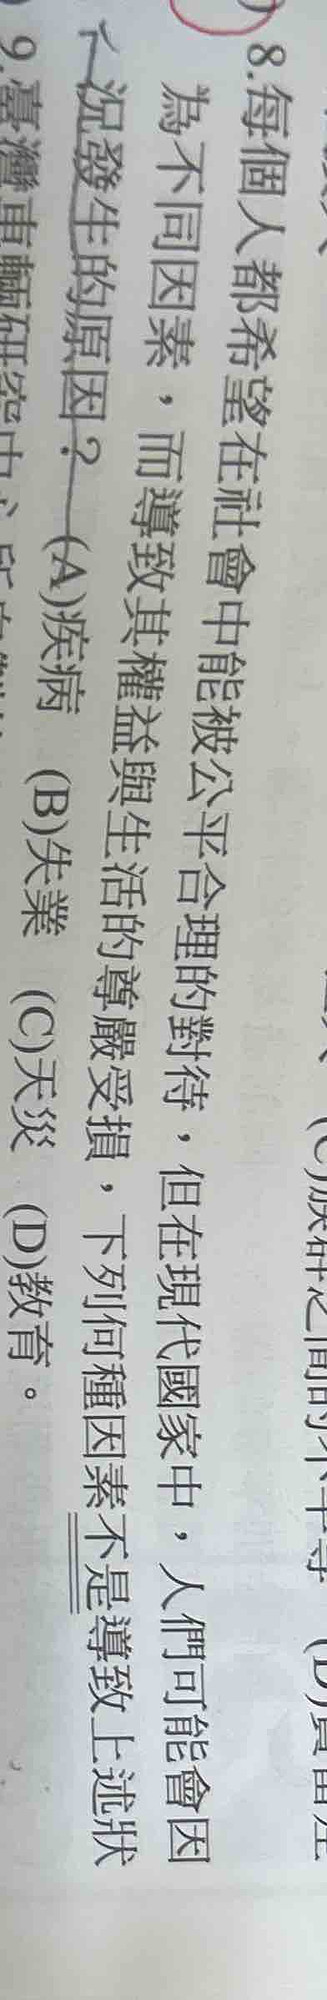 (C)族群之間的不平等 (D)貧富差
8.每個人都希望在社會中能被公平合理的對待，但在現代國家中，人們可能會因
為不同因素，而導致其權益與生活的尊嚴受損，下列何種因素不是導致上述狀
況發生的原因？ (A)疾病 (B)失業 (C)天災 (D)教育。
9.臺灣車輛研究中心所